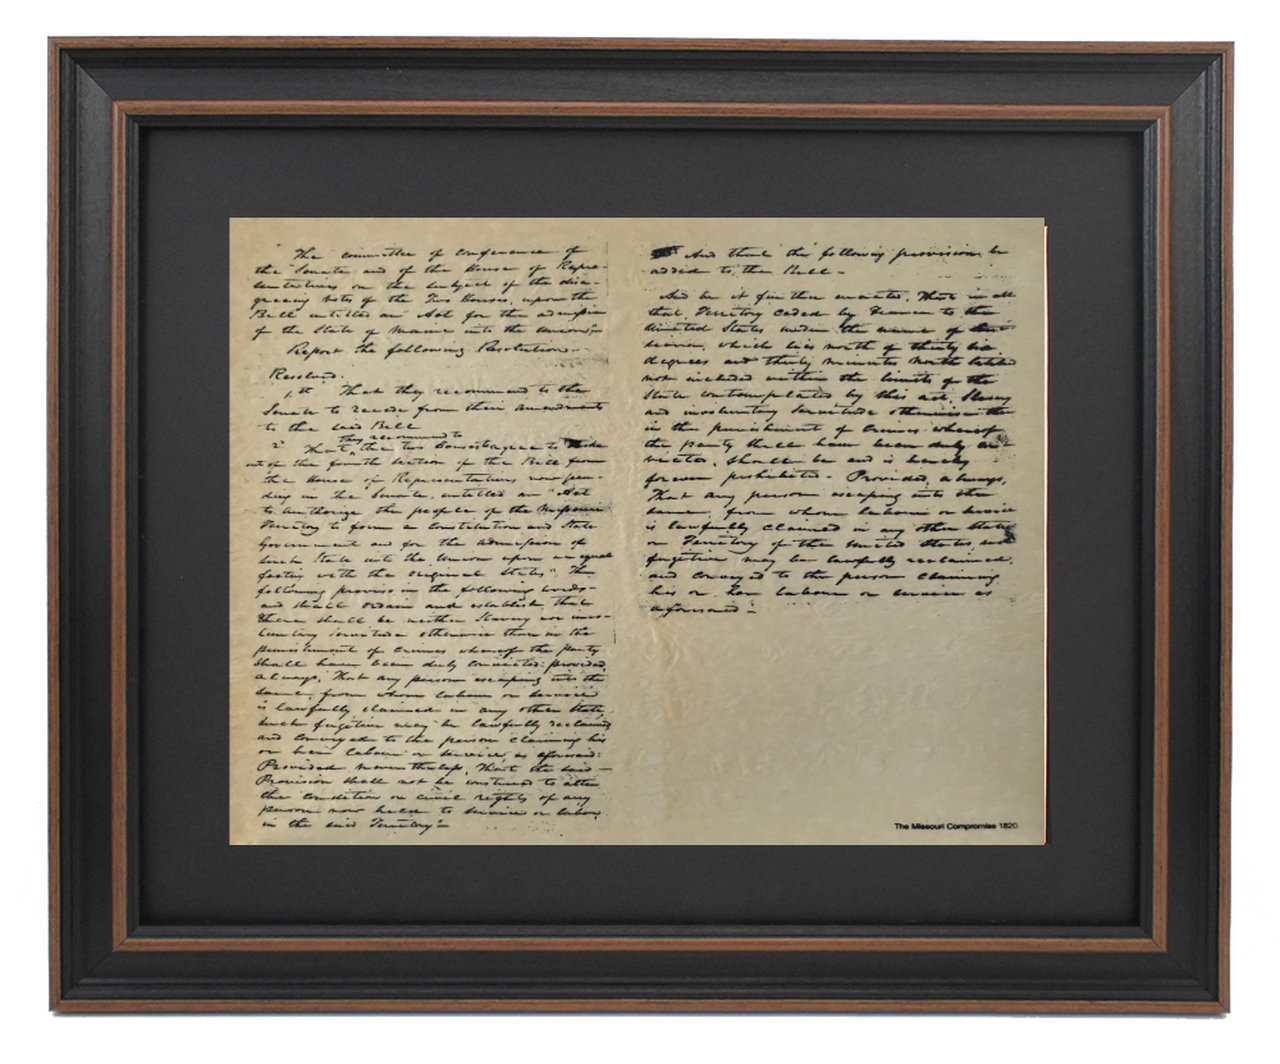 The committee of Conference of
the Senate and of the House of Repre-
sentatives on the subject of the disa-
greeing votes of the Two Houses, upon the
Bill entitled an Act for the admission
of the State of Maine into the Union"
Report the following Resolution.
Resolved.
1st That they recommend to the
Senate to recede from their amendments
to the said Bill
they recommend to
2d That the two Houses agree to strike
out of the fourth section of the Bill from
the House of Representatives now pen-
ding in the Senate, entitled an "Act
to authorize the people of the Missouri
Territory to form a Constitution and State
Government and for the admission of
such State into the Union upon an equal
footing with the original States". The
following proviso in the following words-
and shall ordain and establish, that
there shall be neither Slavery nor invo-
luntary servitude otherwise than in the
punishment of crimes whereof the party
shall have been duly convicted: provided,
always, That any person escaping into the
same, from whom labour or service
is lawfully claimed in any other State,
such fugitive may be lawfully reclaimed
and conveyed to the person claiming his
or her labour or service, as aforesaid:
Provided nevertheless, That the said
Provision shall not be construed to alter
the condition or civil rights of any
person now held to service or labor
in the said Territory"-
And that the following provision be
added to the Bill -
And be it further enacted, That in all
that Territory ceded by France to the
United States under the name of Loui-
siana, which lies north of thirty six
degrees and thirty minutes north latitude
not included within the limits of the
State contemplated by this act, Slavery
and involuntary Servitude otherwise than
in the punishment of Crimes whereof
the party shall have been duly con-
victed, shall be and is hereby
forever prohibited - Provided, always,
That any person escaping into the
same, from whom labour or service
is lawfully claimed in any other State
or Territory of the United States such
fugitive may be lawfully reclaimed,
and conveyed to the person claiming
his or her labour or service as
aforesaid -
The Missouri Compromise 1820